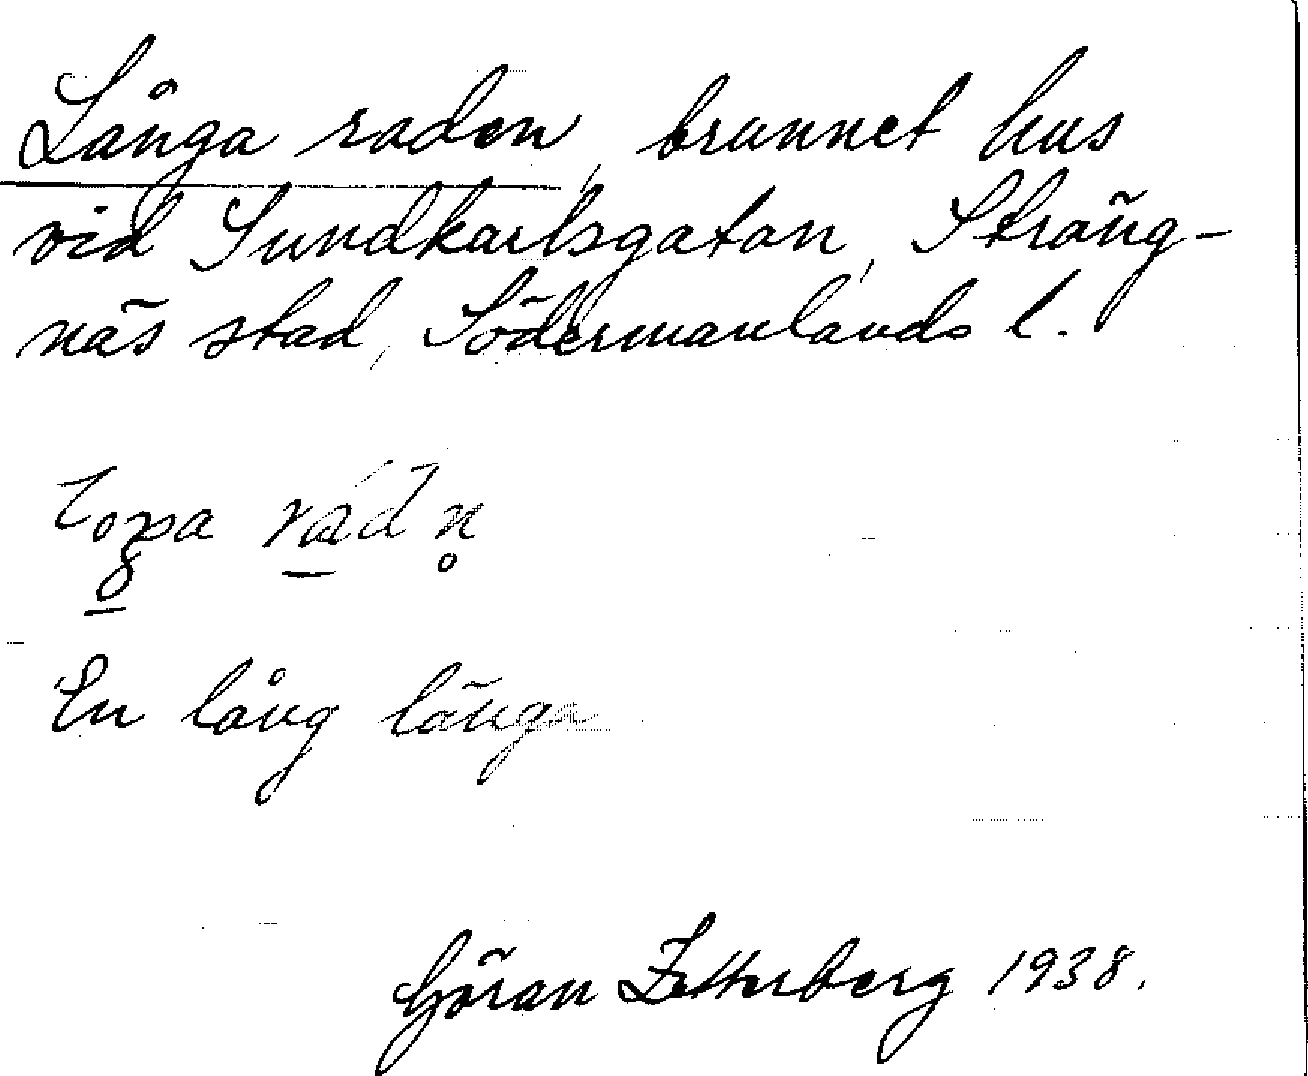 Långa raden, brunnet hus
vid Sundkarlsgatan, Sträng-
näs stad, Södermanlands l.
En lång länga
Göran Zetterberg 1938.